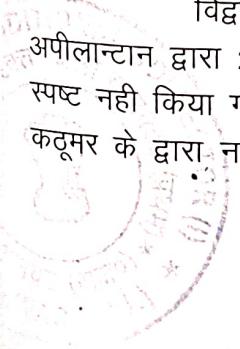 विद्व
अपीलान्टान द्वारा
स्पष्ट नही किया ग
कठूमर के द्वारा न